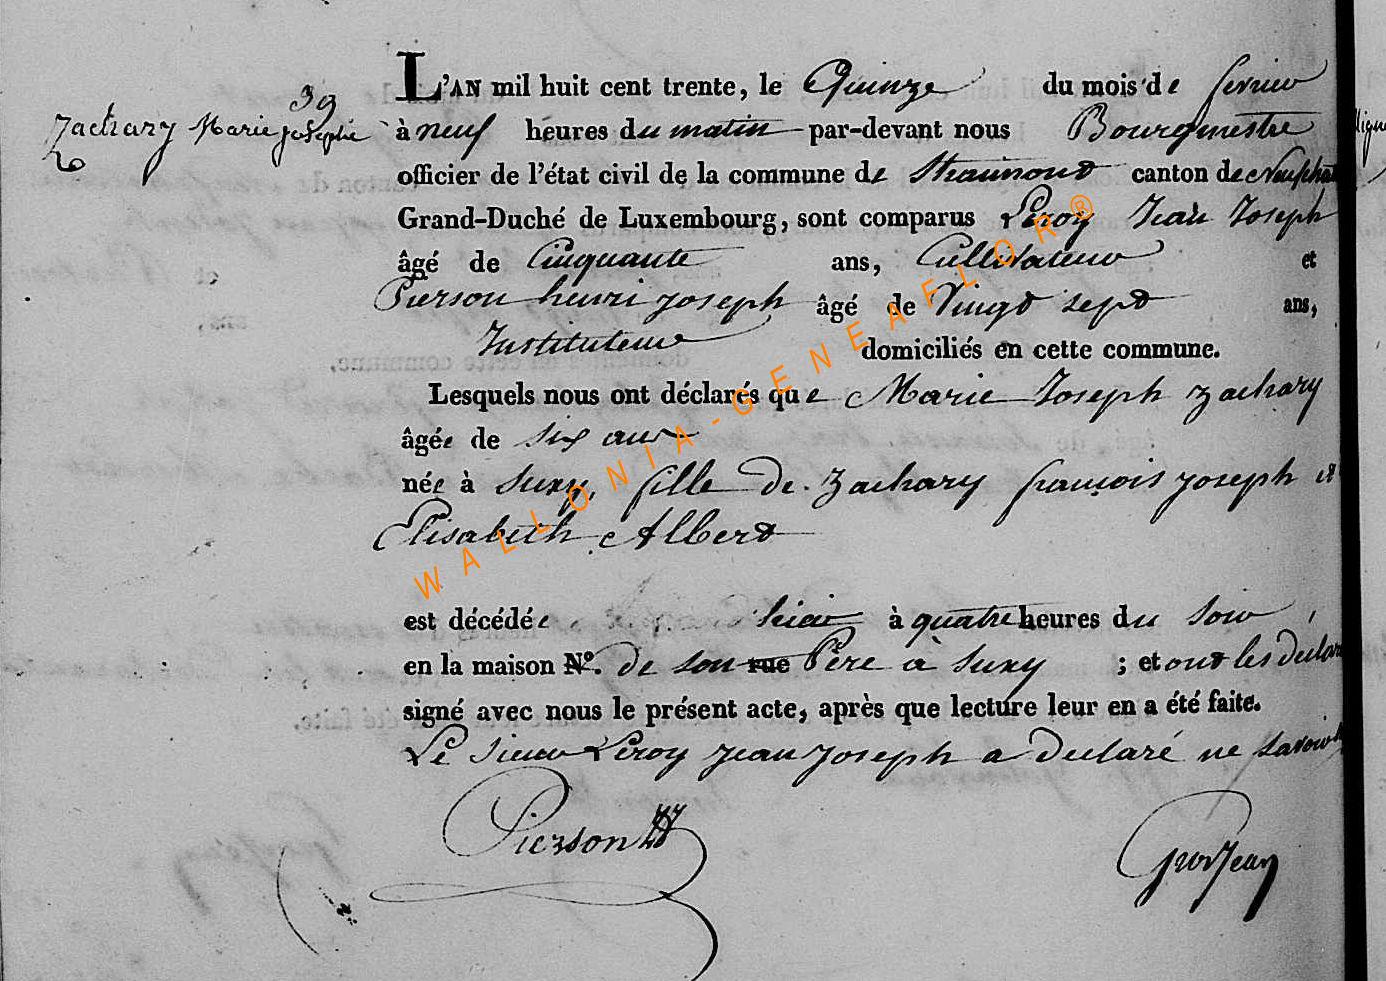 39
Zachary Marie Josephe
L'AN mil huit cent trente, le Quinze du mois de fevrier
à neuf heures du matin par-devant nous Bourgmestre
officier de l'état civil de la commune de Straimont canton de Neufchat
Grand-Duché de Luxembourg, sont comparus Leroy Jean Joseph
âgé de Cinquante ans, Cultivateur et
Pierson henri joseph âgé de Vingt sept ans,
Instituteur domiciliés en cette commune.
Lesquels nous ont déclarés que Marie Joseph Zachary
âgée de six ans
née à Suxy, fille de Zachary françois joseph et
Elisabeth Albert
est décédée hier à quatre heures du soir,
en la maison N°. de son rue Père à Suxy ; et ont les déclar
signé avec nous le présent acte, après que lecture leur en a été faite.
Le sieur Leroy jean joseph a declaré ne savoir
Pierson HJ
Grosjean
WALLONIA-GENEAFLOR®